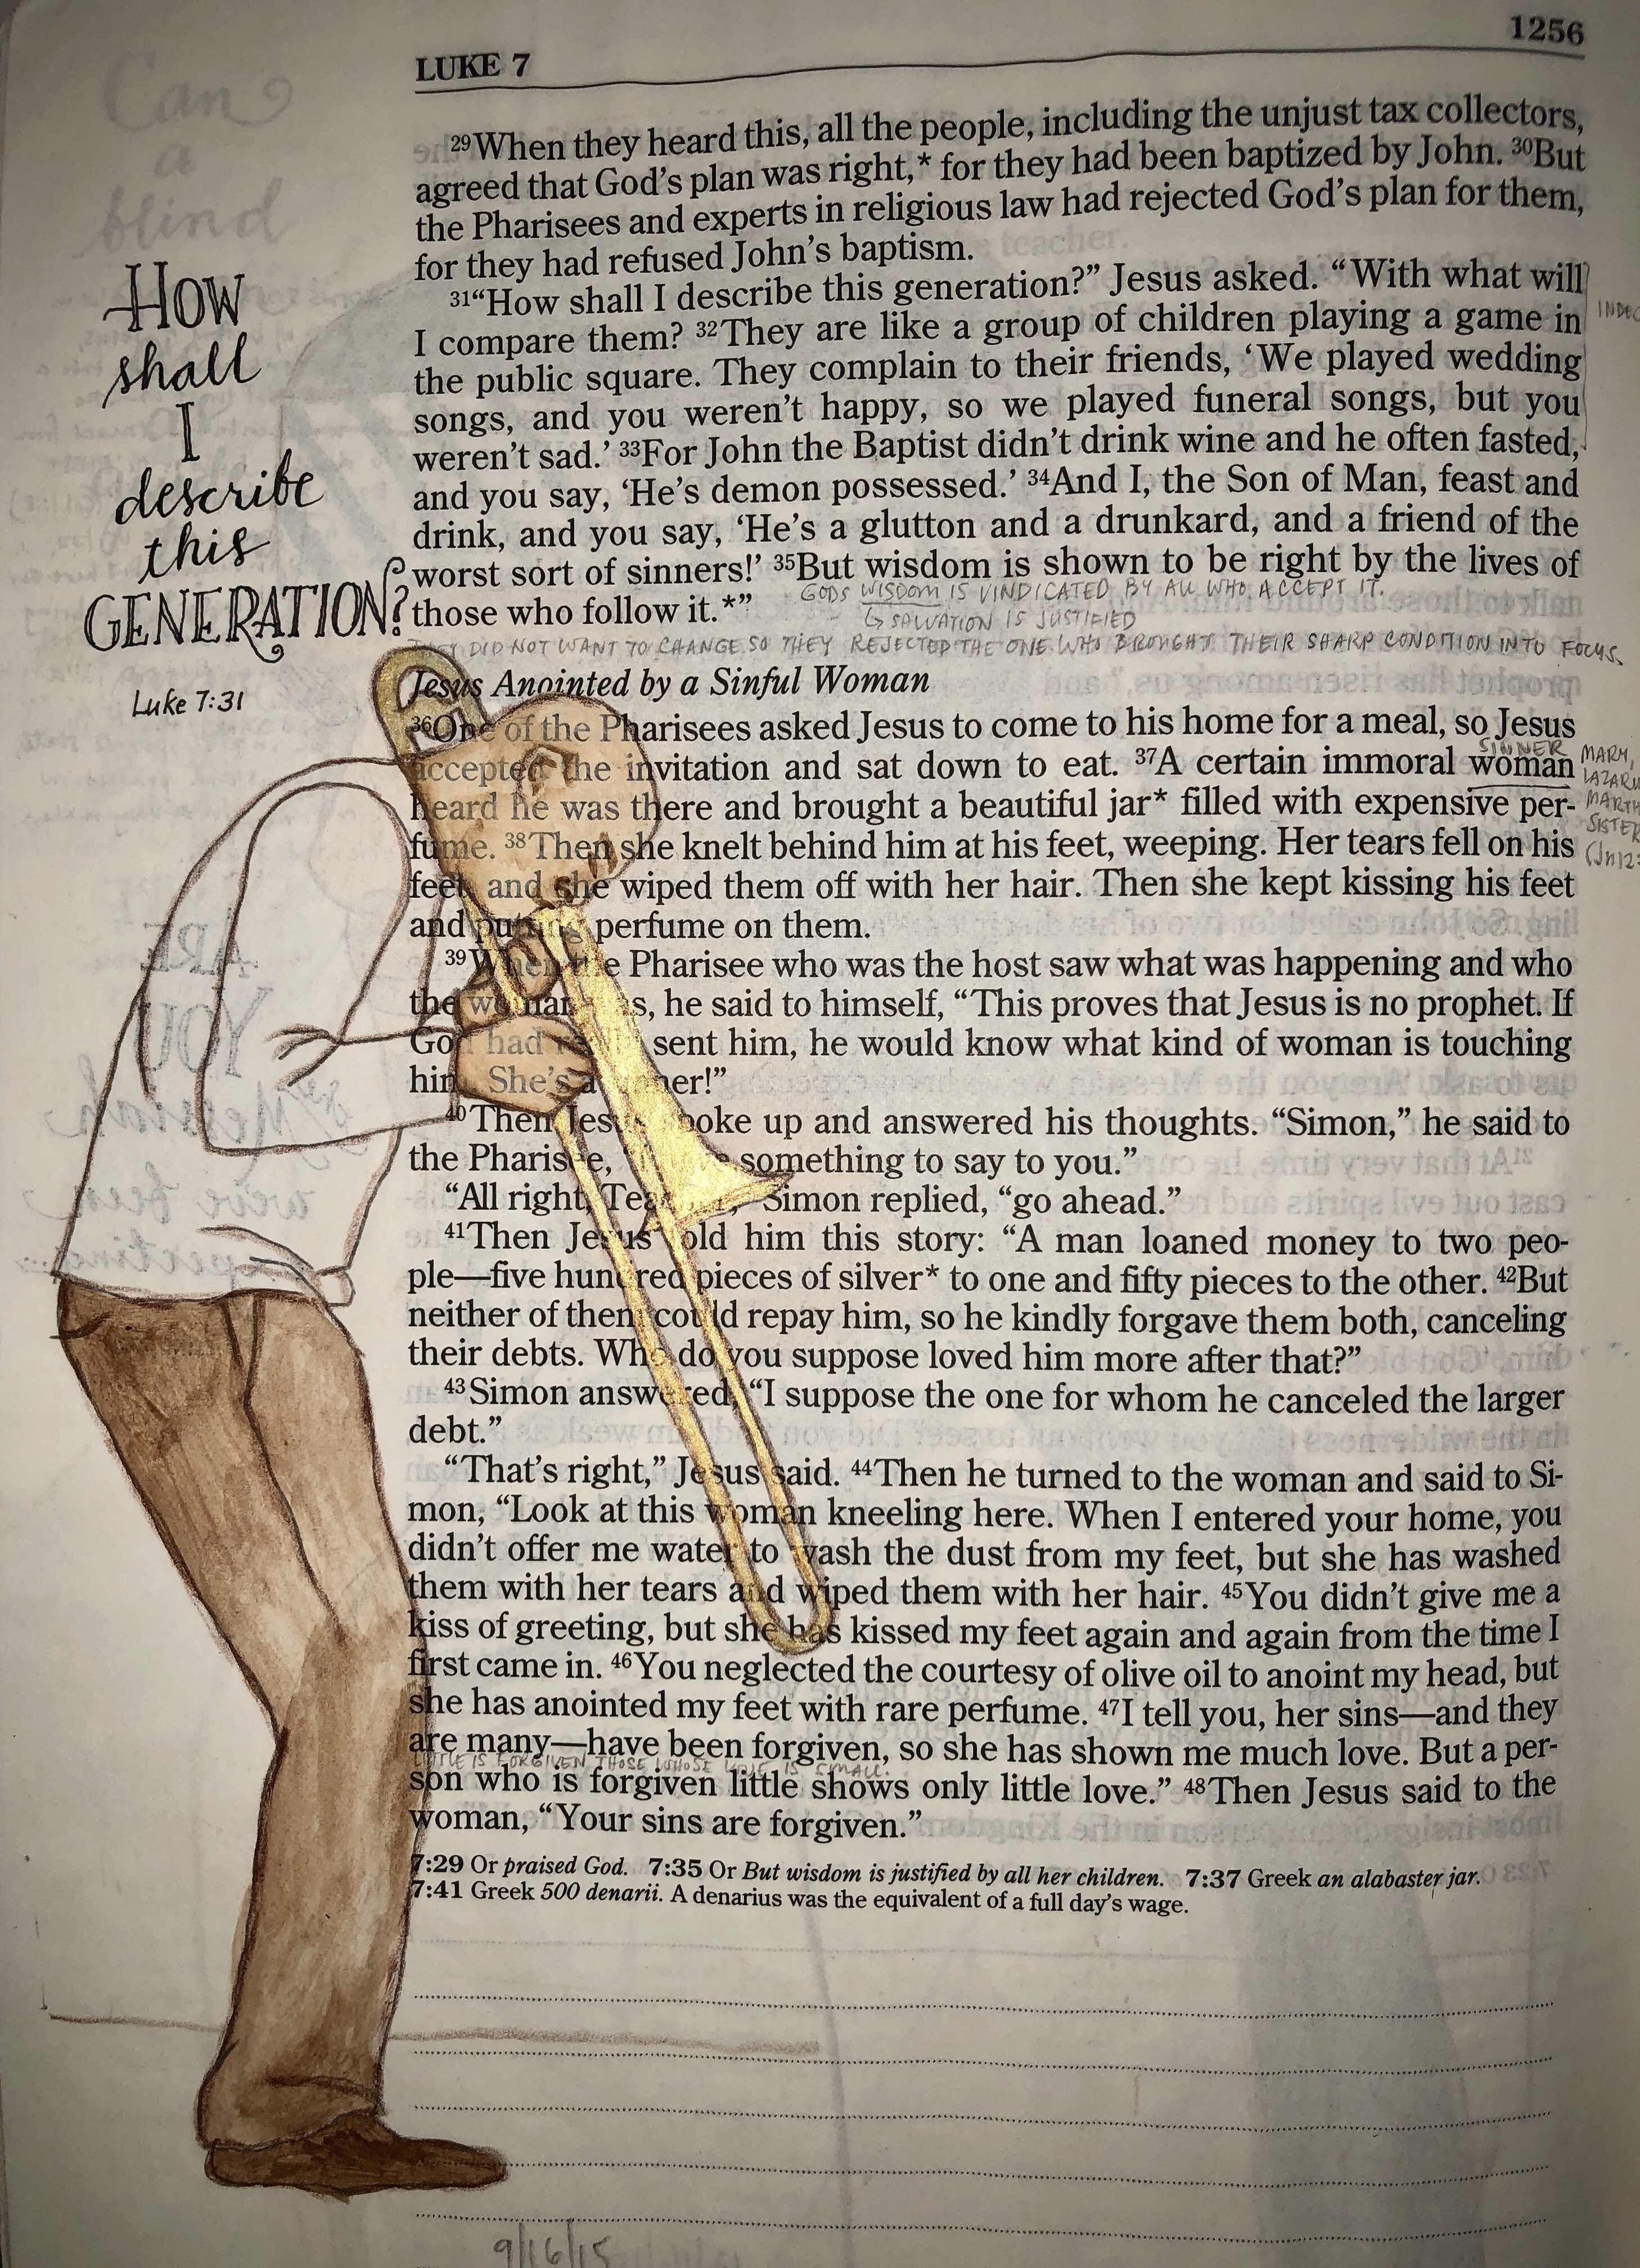 LUKE 7
1256
Can
a
blind
How
shall
I
describe
this
GENERATION?
Luke 7:31
29When they heard this, all the people, including the unjust tax collectors,
agreed that God's plan was right,* for they had been baptized by John. 30But
the Pharisees and experts in religious law had rejected God's plan for them,
for they had refused John's baptism.
31“How shall I describe this generation?” Jesus asked. “With what will
I compare them? 32They are like a group of children playing a game in
the public square. They complain to their friends, ‘We played wedding
songs, and you weren't happy, so we played funeral songs, but you
weren't sad.’ 33For John the Baptist didn't drink wine and he often fasted,
and you say, ‘He's demon possessed.’ 34And I, the Son of Man, feast and
drink, and you say, ‘He's a glutton and a drunkard, and a friend of the
worst sort of sinners!’ 35But wisdom is shown to be right by the lives of
GODS WISDOM IS VINDICATED BY ALL WHO ACCEPT IT.
those who follow it.*”
↳ SALVATION IS JUSTIFIED
THEY DID NOT WANT TO CHANGE SO THEY REJECTED THE ONE WHO BROUGHT THEIR SHARP CONDITION INTO FOCUS.
Jesus Anointed by a Sinful Woman
36One of the Pharisees asked Jesus to come to his home for a meal, so Jesus
SINNER
accepted the invitation and sat down to eat. 37A certain immoral woman
MARY,
LAZARU
MARTH
SISTER
(Jn12:
heard he was there and brought a beautiful jar* filled with expensive per-
fume. 38Then she knelt behind him at his feet, weeping. Her tears fell on his
feet, and she wiped them off with her hair. Then she kept kissing his feet
and putting perfume on them.
39When the Pharisee who was the host saw what was happening and who
the woman was, he said to himself, “This proves that Jesus is no prophet. If
God had really sent him, he would know what kind of woman is touching
him. She's a sinner!”
40Then Jesus spoke up and answered his thoughts. “Simon,” he said to
the Pharisee, “I have something to say to you.”
“All right, Teacher,” Simon replied, “go ahead.”
41Then Jesus told him this story: “A man loaned money to two peo-
ple—five hundred pieces of silver* to one and fifty pieces to the other. 42But
neither of them could repay him, so he kindly forgave them both, canceling
their debts. Who do you suppose loved him more after that?”
43Simon answered, “I suppose the one for whom he canceled the larger
debt.”
“That's right,” Jesus said. 44Then he turned to the woman and said to Si-
mon, “Look at this woman kneeling here. When I entered your home, you
didn't offer me water to wash the dust from my feet, but she has washed
them with her tears and wiped them with her hair. 45You didn't give me a
kiss of greeting, but she has kissed my feet again and again from the time I
first came in. 46You neglected the courtesy of olive oil to anoint my head, but
she has anointed my feet with rare perfume. 47I tell you, her sins—and they
are many—have been forgiven, so she has shown me much love. But a per-
LITTLE IS FORGIVEN THOSE WHOSE LOVE IS SMALL.
son who is forgiven little shows only little love.” 48Then Jesus said to the
woman, “Your sins are forgiven.”
7:29 Or praised God. 7:35 Or But wisdom is justified by all her children. 7:37 Greek an alabaster jar.
7:41 Greek 500 denarii. A denarius was the equivalent of a full day's wage.
9/16/15